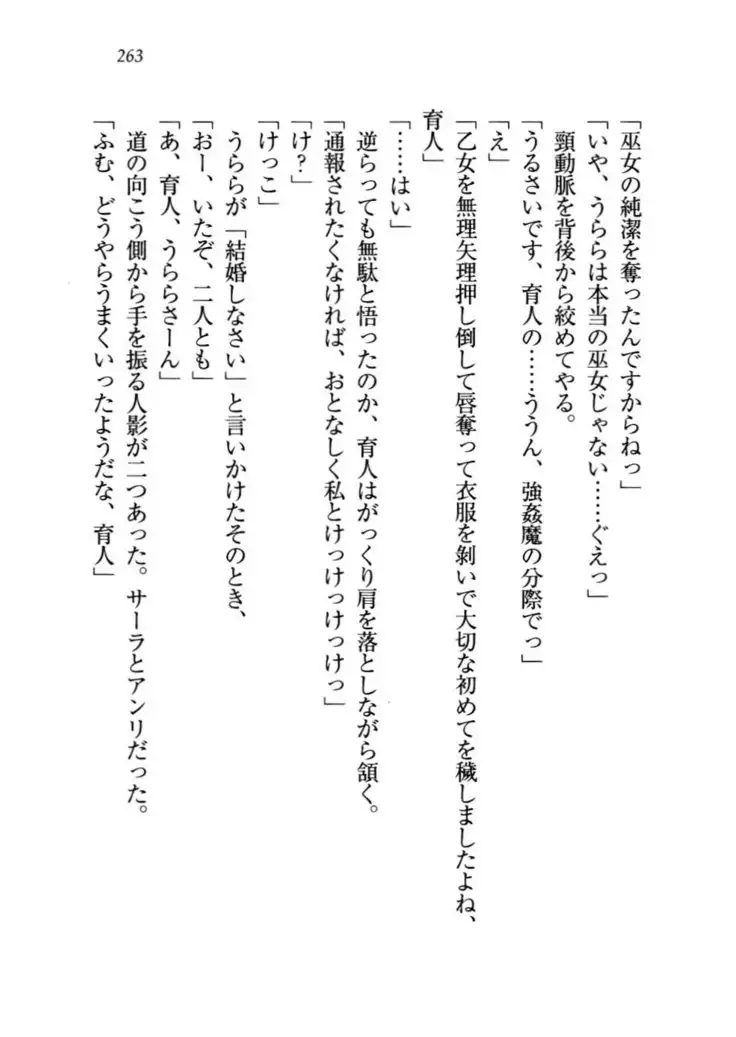 263
「巫女の純潔を奪ったんですからねっ」
「いや、うららは本当の巫女じゃない……ぐえっ」
頸動脈を背後から絞めてやる。
「うるさいです、育人の……ううん、強姦魔の分際でっ」
「え」
「乙女を無理矢理押し倒して唇奪って衣服を剝いで大切な初めてを穢しましたよね、
育人」
「……はい」
逆らっても無駄と悟ったのか、育人はがっくり肩を落としながら頷く。
「通報されたくなければ、おとなしく私とけっけっけっけっ」
「け?」
「けっこ」
うららが「結婚しなさい」と言いかけたそのとき、
「おー、いたぞ、二人とも」
「あ、育人、うららさーん」
道の向こう側から手を振る人影が二つあった。サーラとアンリだった。
「ふむ、どうやらうまくいったようだな、育人」